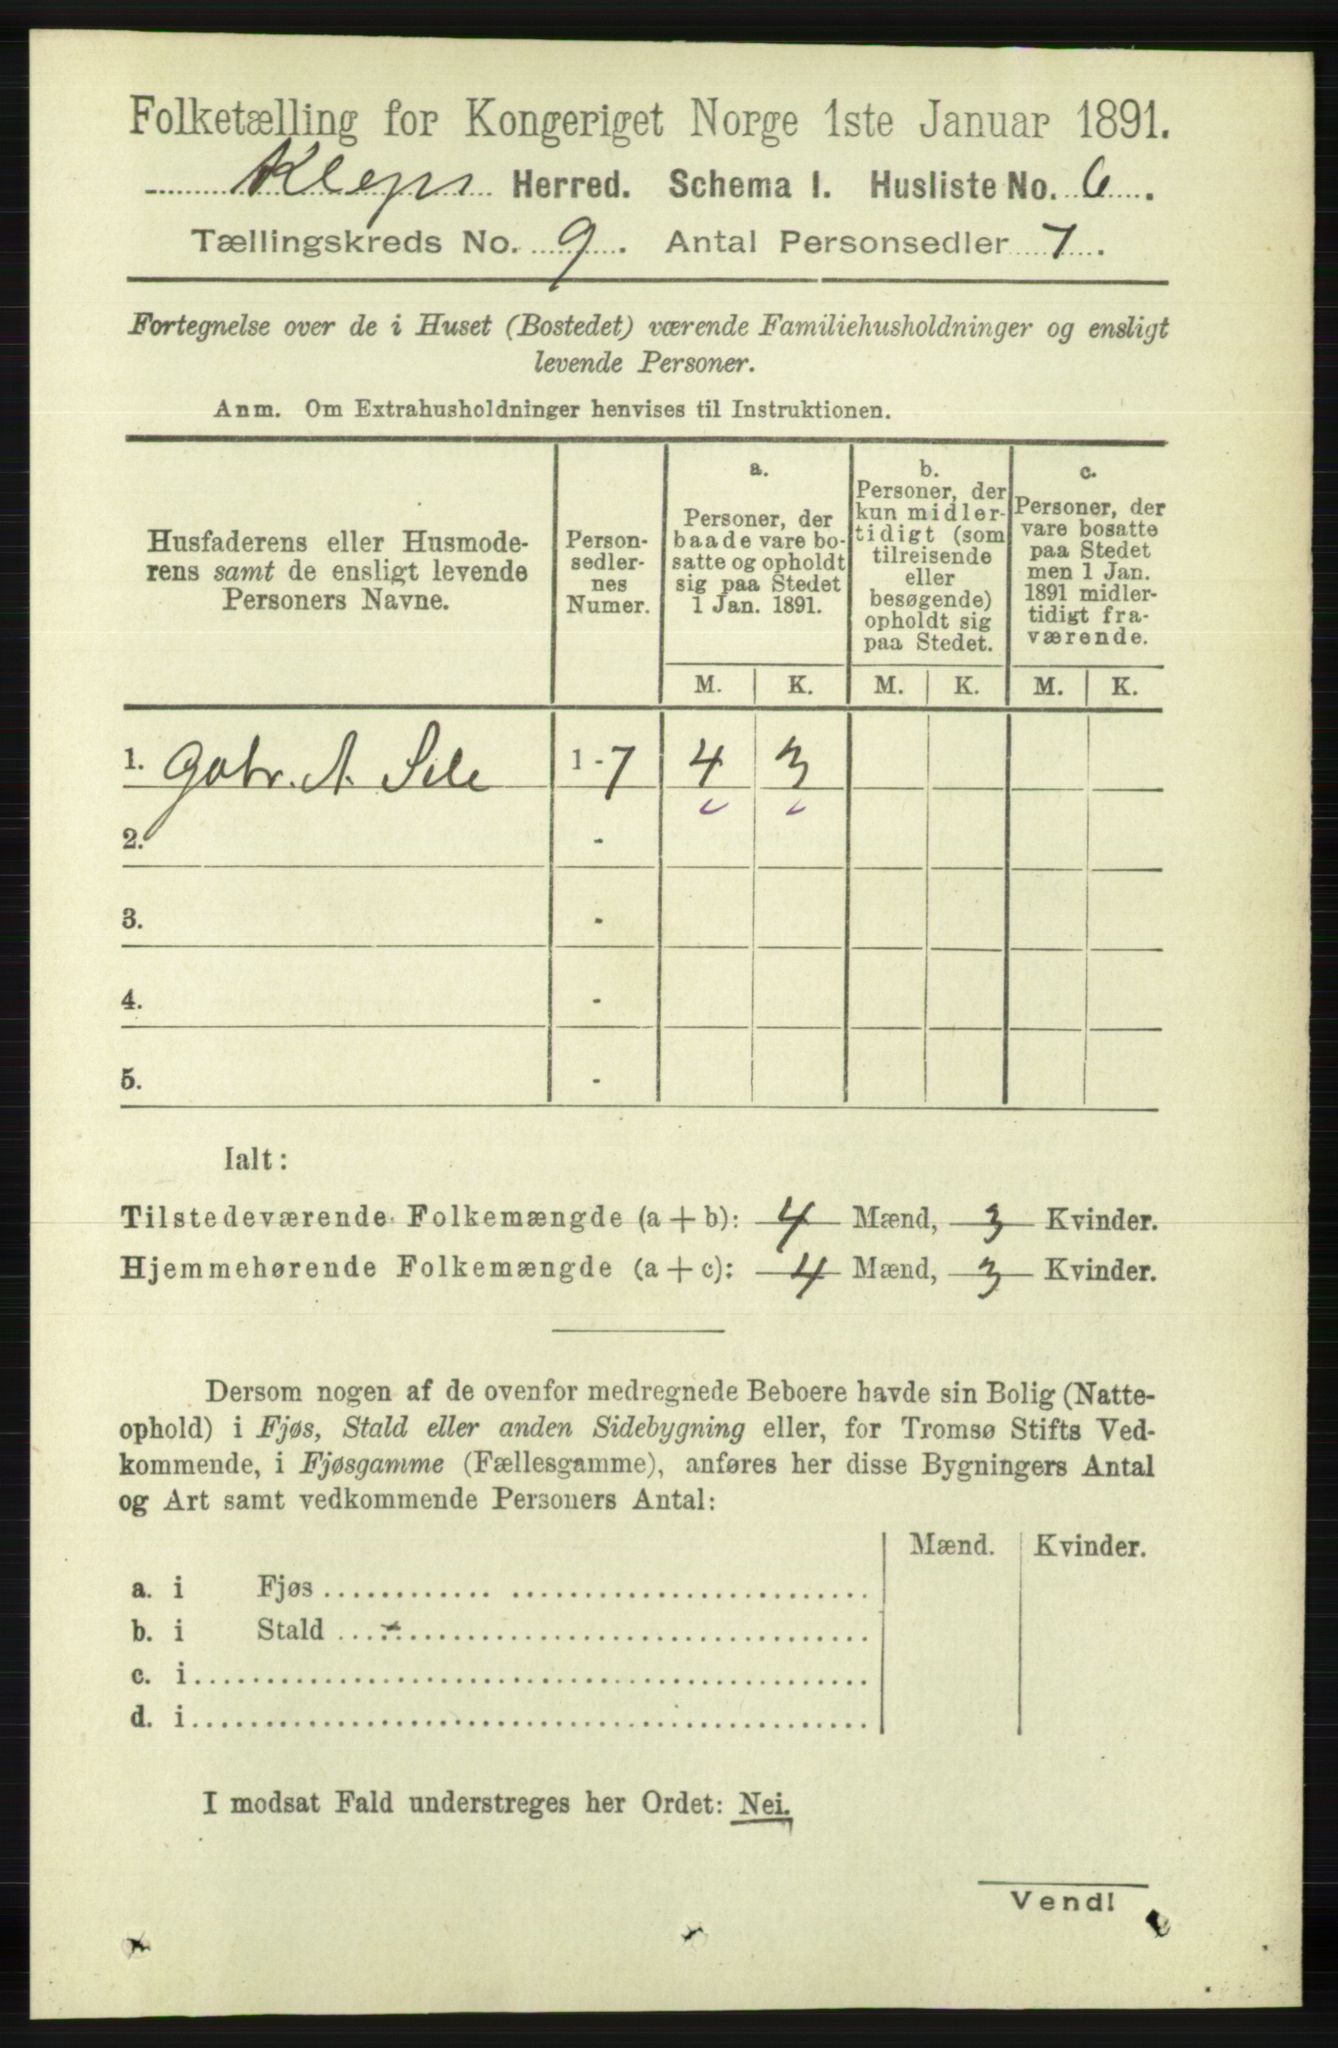 Folketælling for Kongeriget Norge 1ste Januar 1891.
Klepp Herred. Schema I. Husliste No. 6.
Tællingskreds No. 9. Antal Personsedler 7.
Fortegnelse over de i Huset (Bostedet) værende Familiehusholdninger og ensligt
levende Personer.
Anm. Om Extrahusholdninger henvises til Instruktionen.
Husfaderens eller Husmode-
rens samt de ensligt levende
Personers Navne.
Person-
sedler-
nes
Numer.
a.
Personer, der
baade vare bo-
satte og opholdt
sig paa Stedet
1 Jan. 1891.
b.
Personer, der
kun midler-
tidigt (som
tilreisende
eller
besøgende)
opholdt sig
paa Stedet.
c.
Personer, der
vare bosatte
paa Stedet
men 1 Jan.
1891 midler-
tidigt fra-
værende.
M. K. M. K. M. K.
1. Gabr. A. Sele 1 - 7 4 3
2. -
3. -
4. -
5. -
Ialt:
Tilstedeværende Folkemængde (a + b): 4 Mænd, 3 Kvinder.
Hjemmehørende Folkemængde (a + c): 4 Mænd, 3 Kvinder.
Dersom nogen af de ovenfor medregnede Beboere havde sin Bolig (Natte-
ophold) i Fjøs, Stald eller anden Sidebygning eller, for Tromsø Stifts Ved-
kommende, i Fjøsgamme (Fællesgamme), anføres her disse Bygningers Antal
og Art samt vedkommende Personers Antal:
Mænd. Kvinder.
a. i Fjøs
b. i Stald
c. i
d. i
I modsat Fald understreges her Ordet: Nei.
Vend!